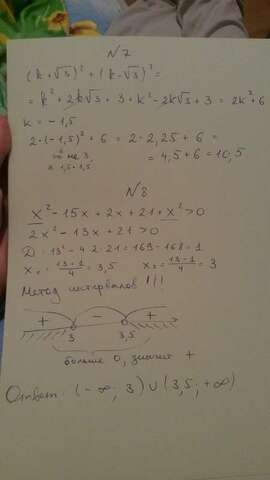 №7
(k+√3)² + (k-√3)² =
= k² + 2k√3 + 3 + k² - 2k√3 + 3 = 2k² + 6
k = -1,5
2·(-1,5)² + 6 = 2·2,25 + 6 =
= 4,5 + 6 = 10,5
это не 3,
а 1,5·1,5
№8
x² - 15x + 2x + 21 + x² > 0
2x² - 13x + 21 > 0
D = 13² - 4·2·21 = 169 - 168 = 1
x₁ = 13+1/4 = 3,5 x₂ = 13-1/4 = 3
Метод интервалов !!!
+ - +
3 3,5
больше 0, значит +
Ответ: (-∞; 3) ∪ (3,5; +∞)